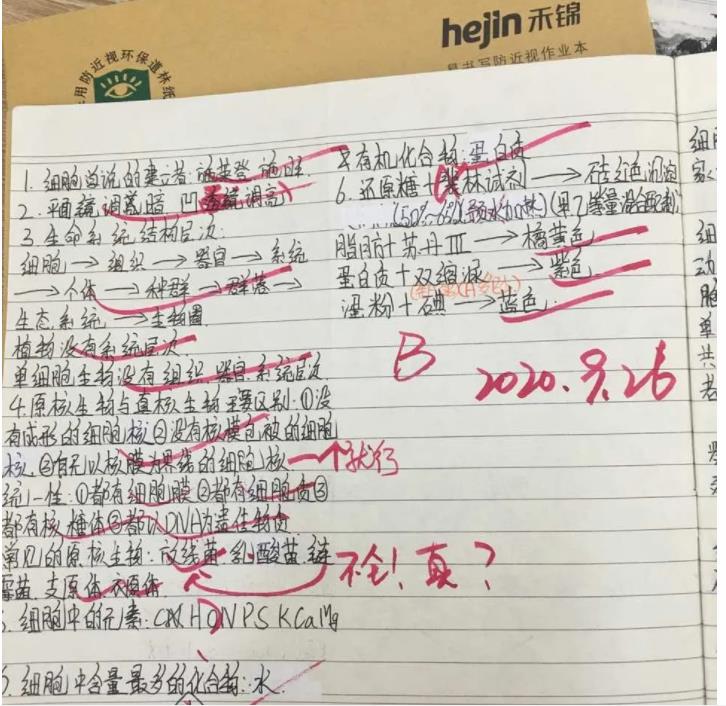 hejin 禾锦
易书写防近视作业本
用防近视环保道林纸
1. 细胞学说的建立者: 施莱登 施旺.
2. 平面镜调高暗 凹透镜调高)
3. 生命系统结构层次:
细胞 → 组织 → 器官 → 系统
→ 个体 → 种群 → 群落 →
生态系统 → 生物圈
植物没有系统层次.
单细胞生物没有组织 器官 系统层次
4.原核生物与真核生物主要区别: ①没
有成形的细胞核 ②没有核膜包被的细胞
核. ③有无以核膜为界线的细胞核 一个就行
统一性: ①都有细胞膜 ②都有细胞质 ③
都有核糖体 ③都以DNA为遗传物质
常见的原核生物: 放线菌 乳酸菌 链
霉菌 支原体 衣原体 不全! 真?
细胞中的元素: C H O N P S K Ca Mg
细胞中含量最多的化合物: 水.
有机化合物: 蛋白质
6. 还原糖 + 斐林试剂 → 砖红色沉淀
(50%~65%温水加热) (甲乙等量混合
脂肪 + 苏丹Ⅲ → 橘黄色
蛋白质 + 双缩脲 → 紫色
淀粉 + 碘 → 蓝色.
B
2020. 9. 26